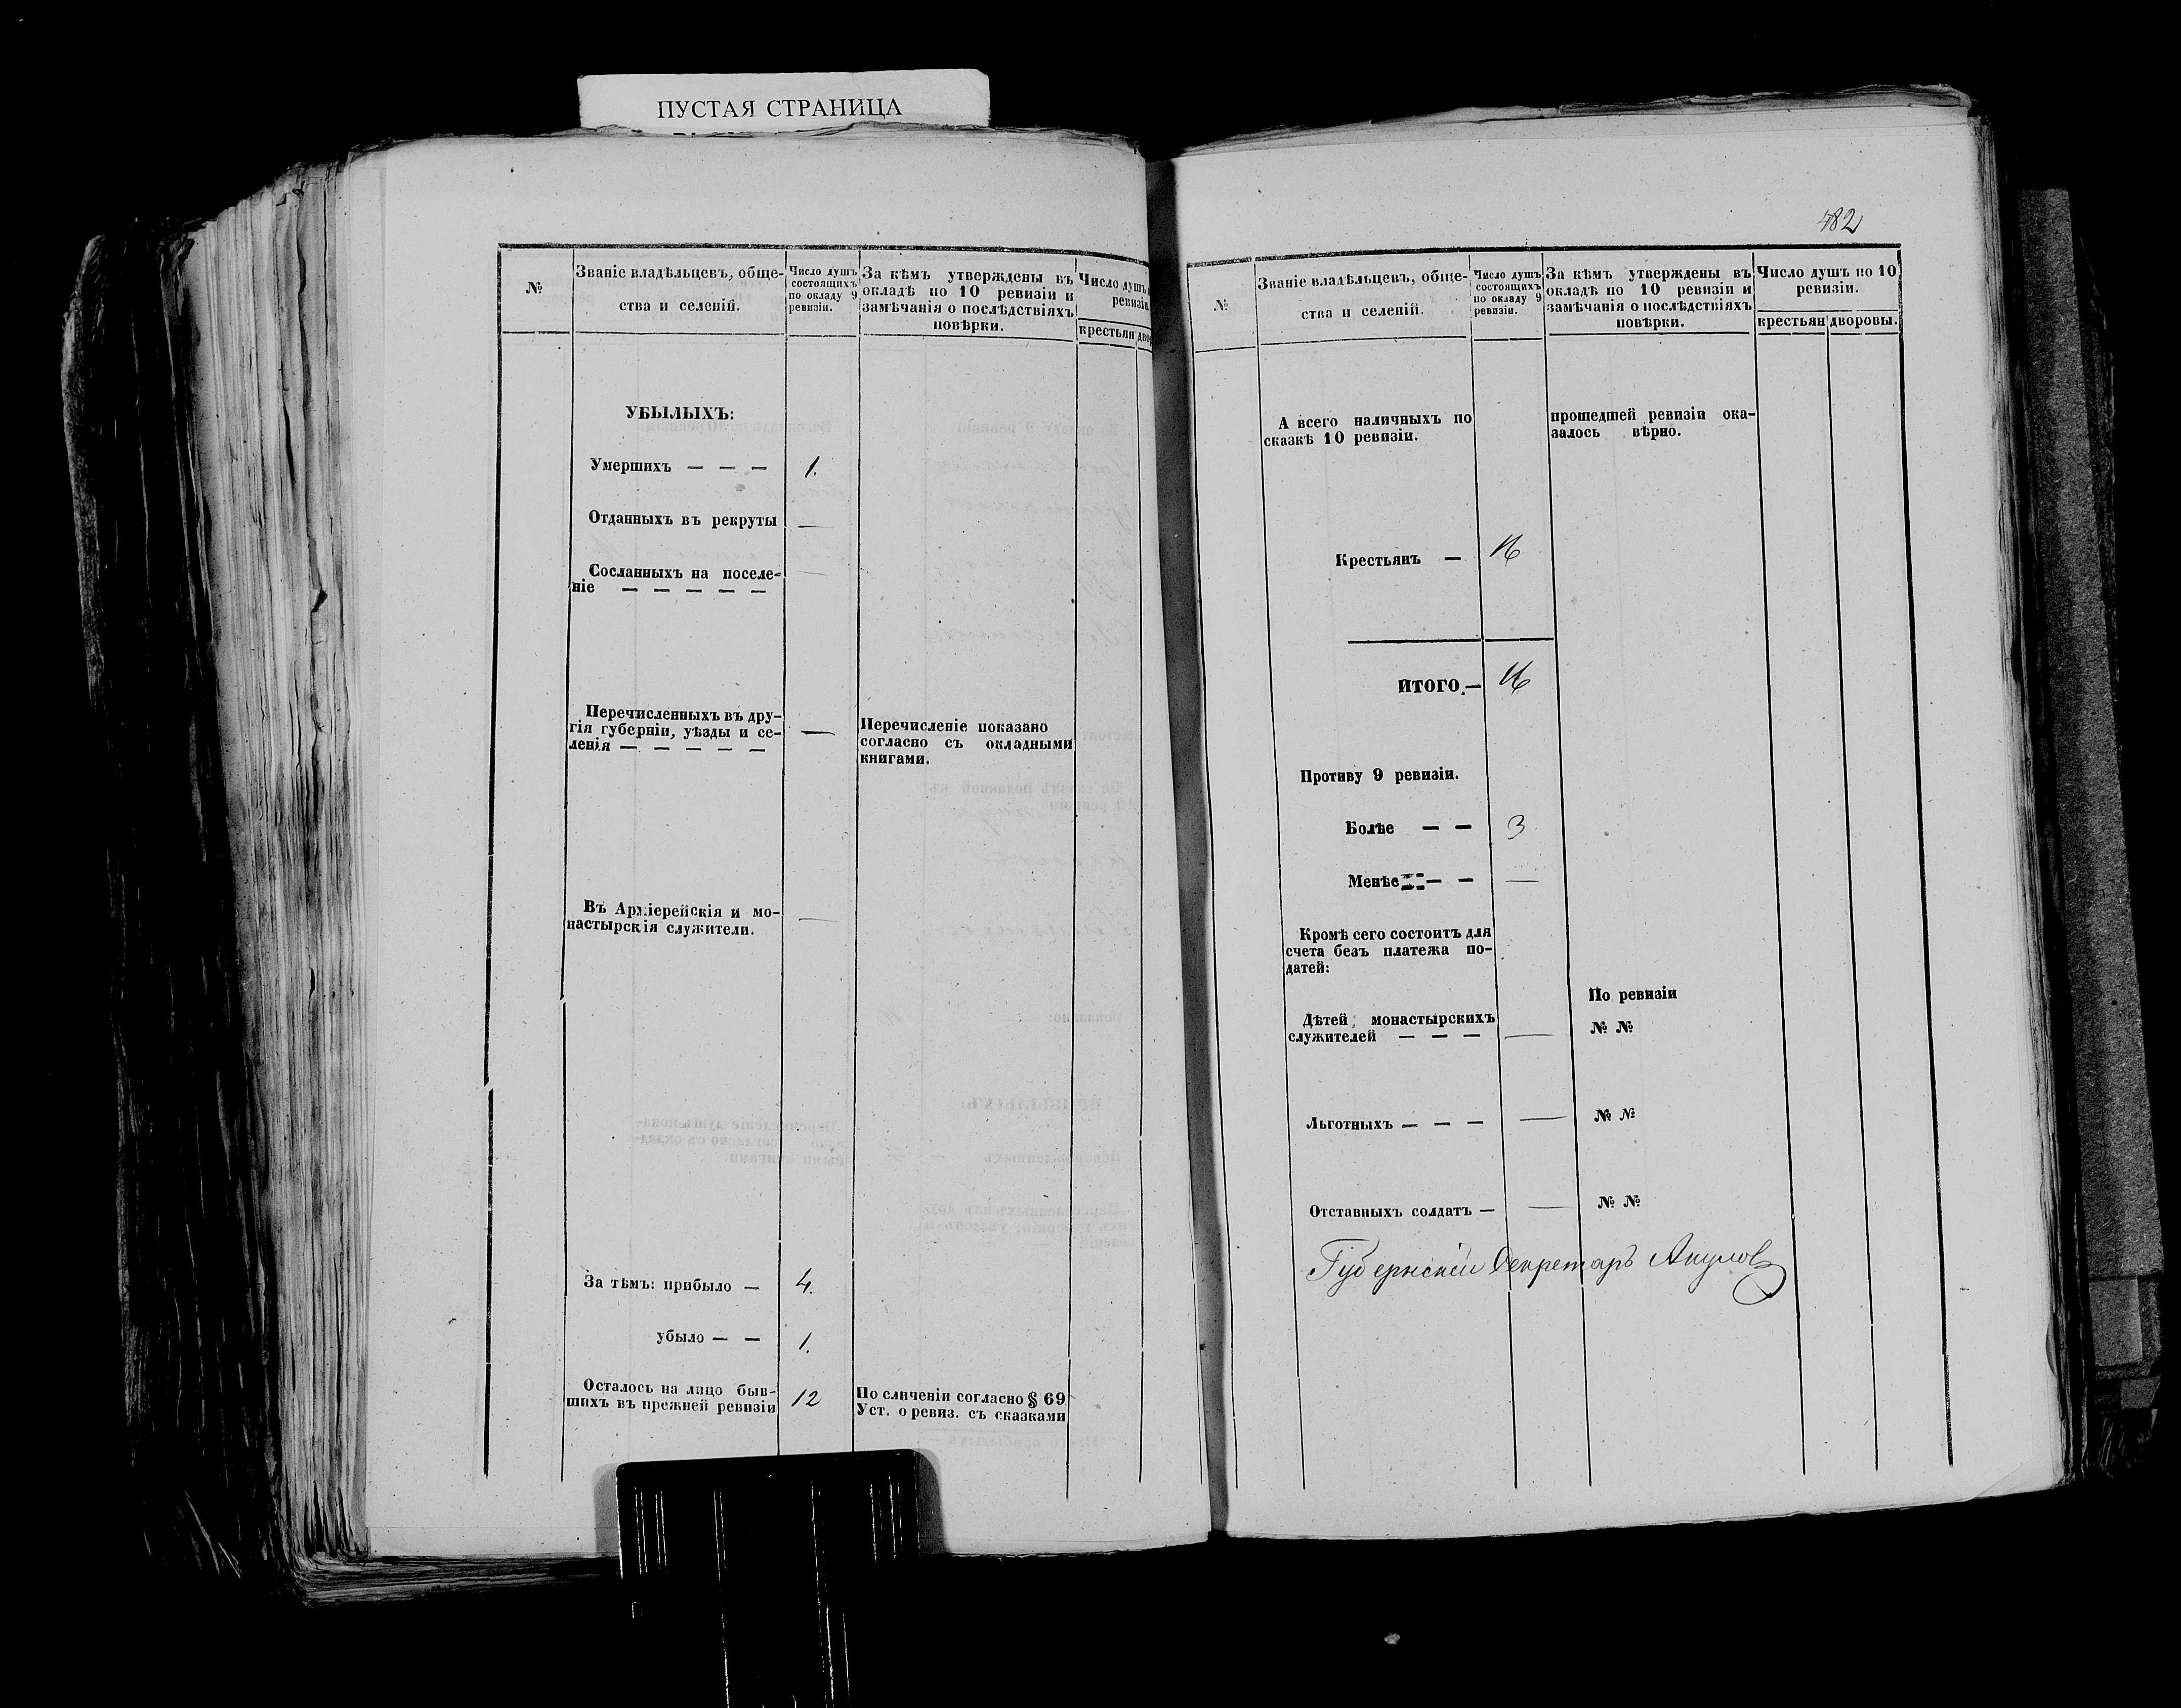 ПУСТАЯ СТРАНИЦА
№
Званіе владѣльцевъ, обще-
ства и селеній.
Число душъ
состоящихъ
по окладу 9
ревизіи.
За кѣмъ утверждены въ
окладѣ по 10 ревизіи и
замѣчанія о послѣдствіяхъ
повѣрки.
Число душъ
ревизіи
крестьян
УБЫЛЫХЪ:
Умершихъ — — — 1.
Отданныхъ въ рекруты —
Сосланныхъ на поселе- —
ніе — — — — —
Перечисленныхъ въ дру-
гія губерніи, уѣзды и се- —
ленія — — — — —
Перечисленіе показано
согласно съ окладными
книгами.
Въ Архіерейскія и мо- —
настырскія служители.
За тѣмъ: прибыло — 4.
убыло — — 1.
Осталось на лицо быв-
шихъ въ прежней ревизіи 12
По сличеніи согласно § 69
Уст. о ревиз. съ сказками
482
№
Званіе владѣльцевъ, обще-
ства и селеній.
Число душъ
состоящихъ
по окладу 9
ревизіи.
За кѣмъ утверждены въ
окладѣ по 10 ревизіи и
замѣчанія о послѣдствіяхъ
повѣрки.
Число душъ по 10
ревизіи.
крестьян дворовы.
А всего наличныхъ по
сказкѣ 10 ревизіи.
прошедшей ревизіи ока-
залось вѣрно.
Крестьянъ — 16
ИТОГО.— 16
Противу 9 ревизіи.
Болѣе — — 3
Менѣе — — —
Кромѣ сего состоитъ для
счета безъ платежа по-
датей:
По ревизіи
Дѣтей, монастырскихъ
служителей — — — —
№ №
Льготныхъ — — — — № №
Отставныхъ солдатъ — — № №
Губернскій Секретарь Акуловъ